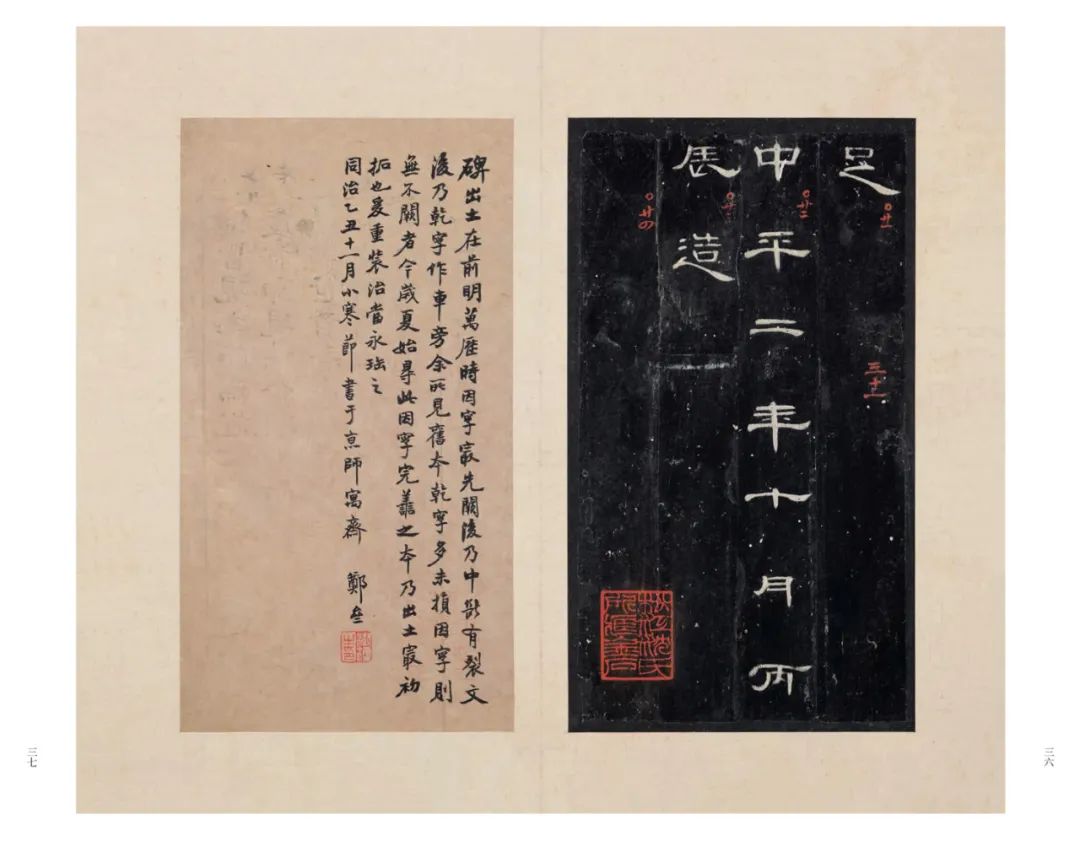 足
〇廿一
三十一
中平二年十月丙
〇廿二
辰造
〇廿三
〇廿四
三六
碑出土在前明萬曆時因字冣先闕後乃中斷有裂文
後乃乾字作車旁余所見舊本乾字多未損因字則
無不闕者今歲夏始尋此因字完善之本乃出土冣初
拓也爰重裝治當永珤之
同治乙丑十一月小寒節書于京師寓齋 鄭亝
三七